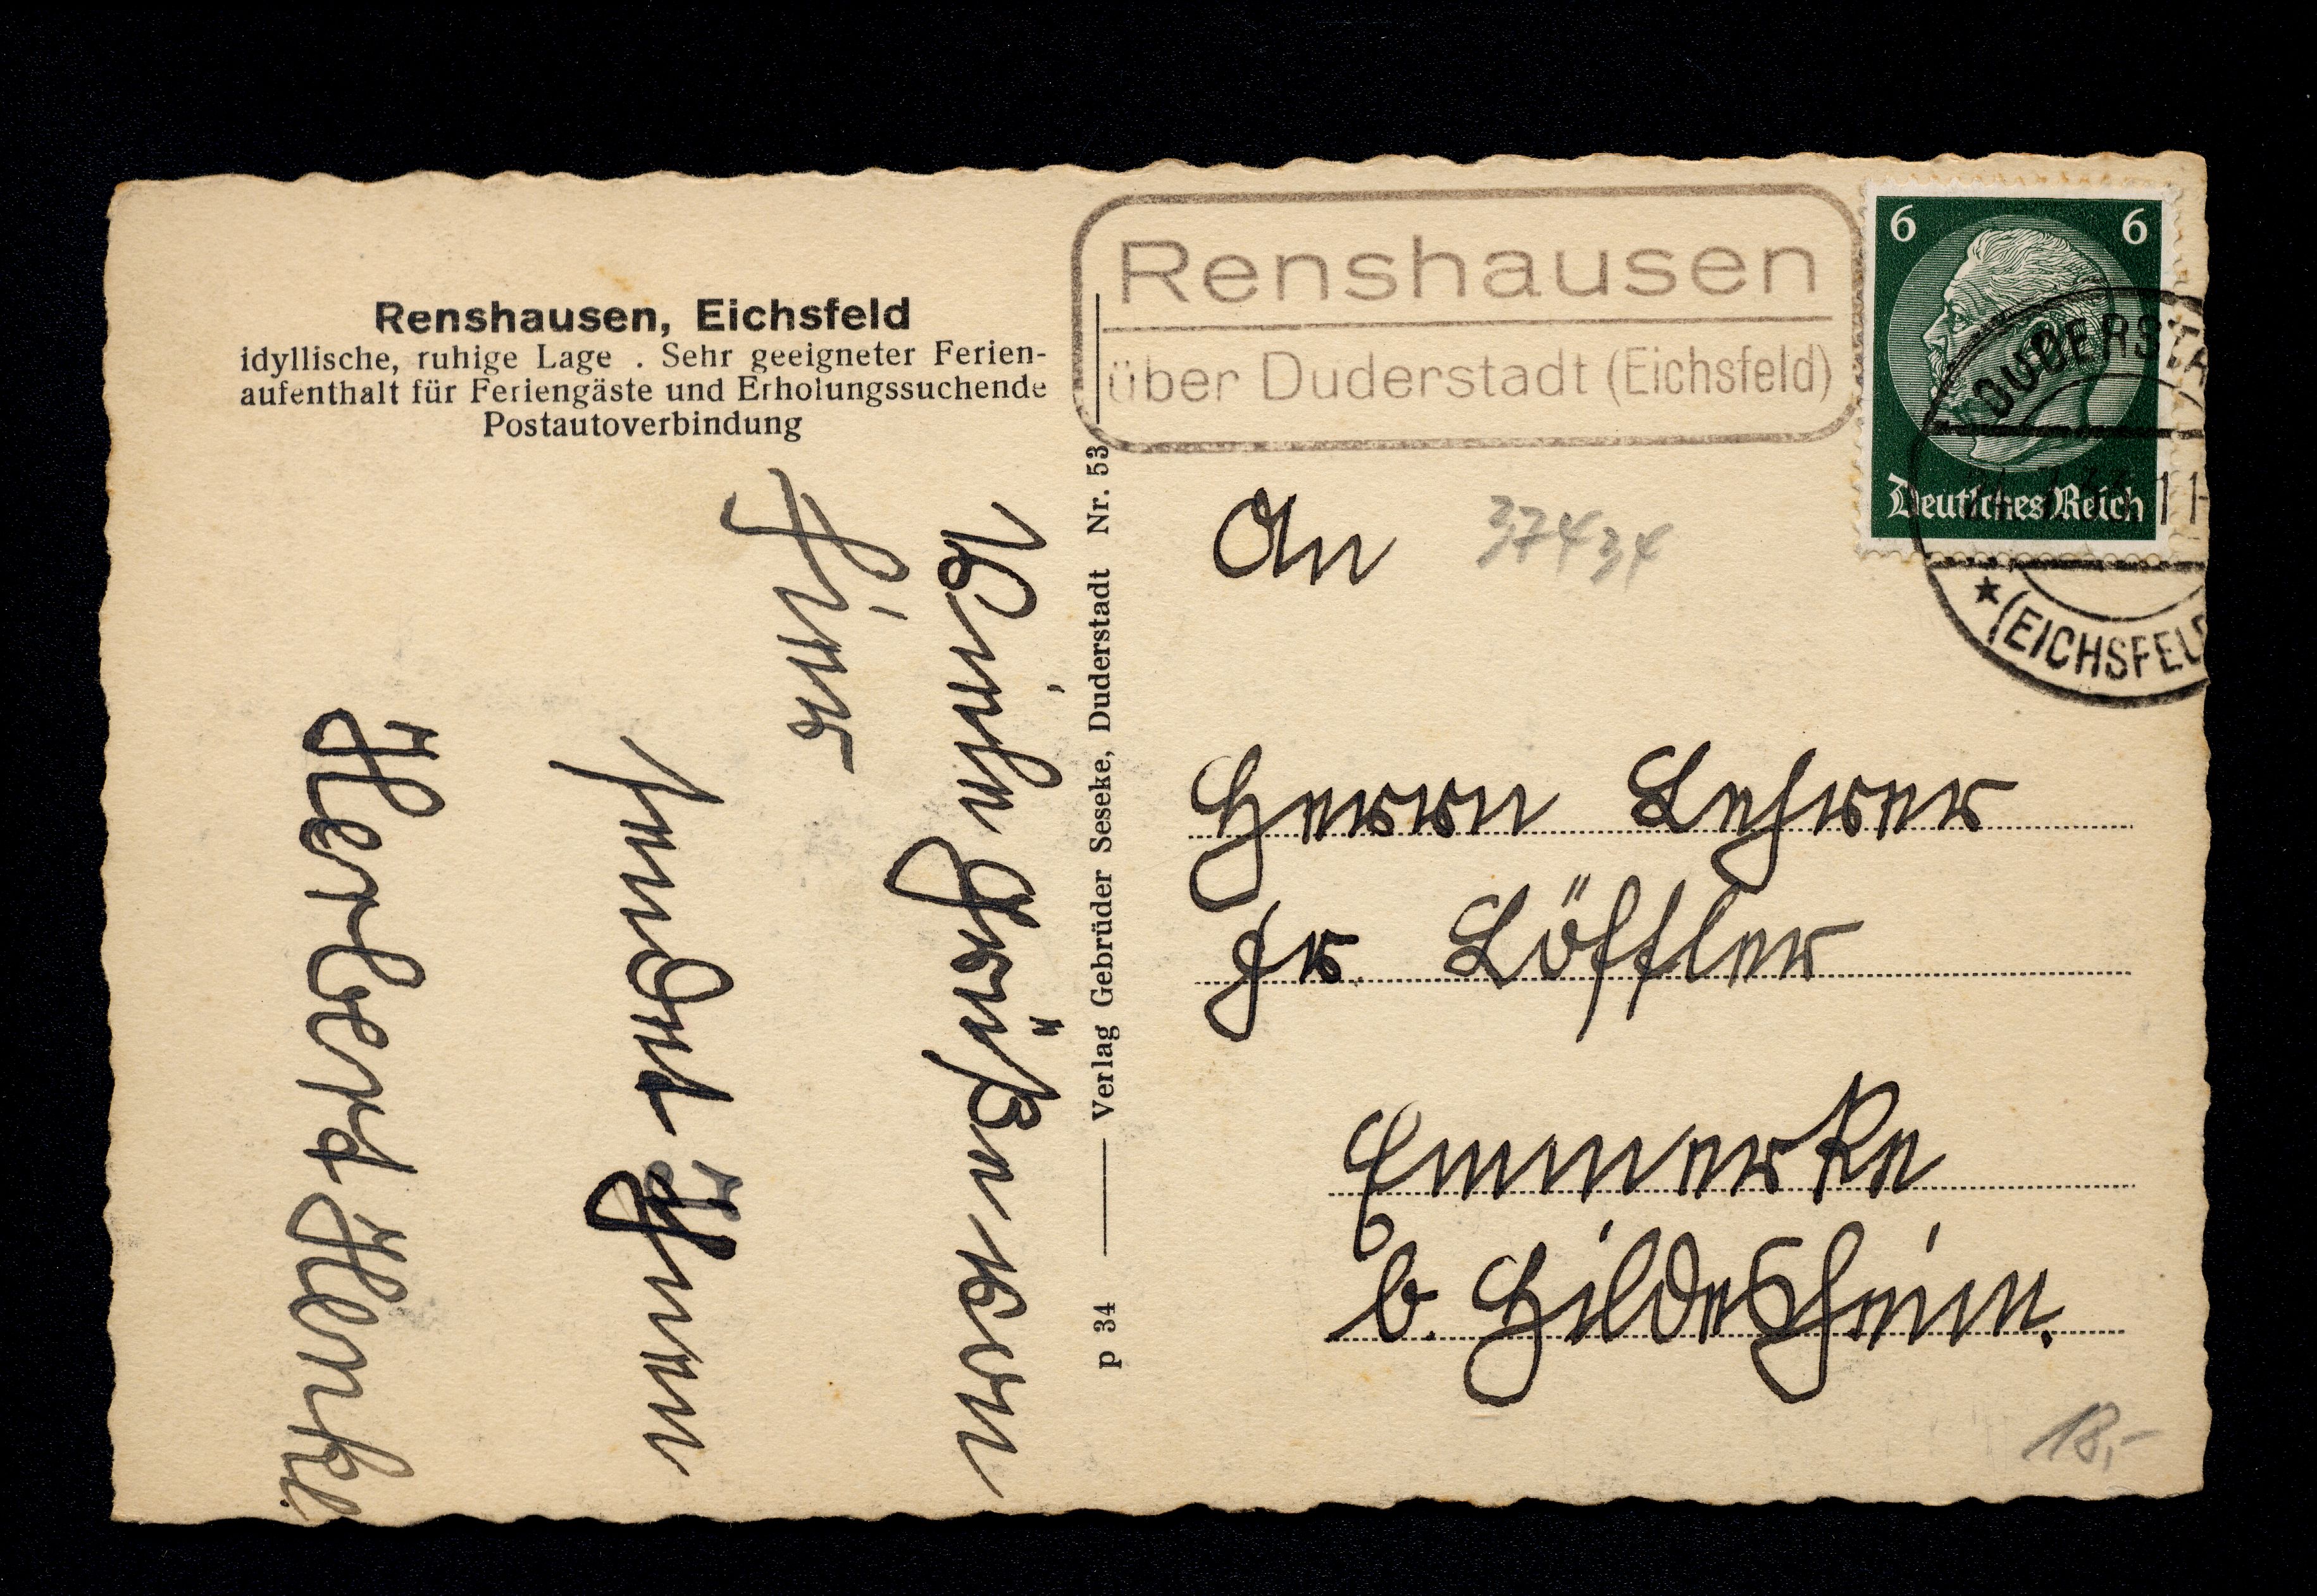 Renshausen, Eichsfeld
idyllische, ruhige Lage . Sehr geeigneter Ferien-
aufenthalt für Feriengäste und Erholungssuchende
Postautoverbindung
Grüße
sendet Ihnen
Herberd Henkel
p 34 Verlag Gebrüder Seseke, Duderstadt Nr. 53
Renshausen
über Duderstadt (Eichsfeld)
6 6
Deutsches Reich
DUDERSTA
(EICHSFELD
An
37434
Herrn Lehrer
Löffler
Emmerke
b. Hildesheim.
18,-